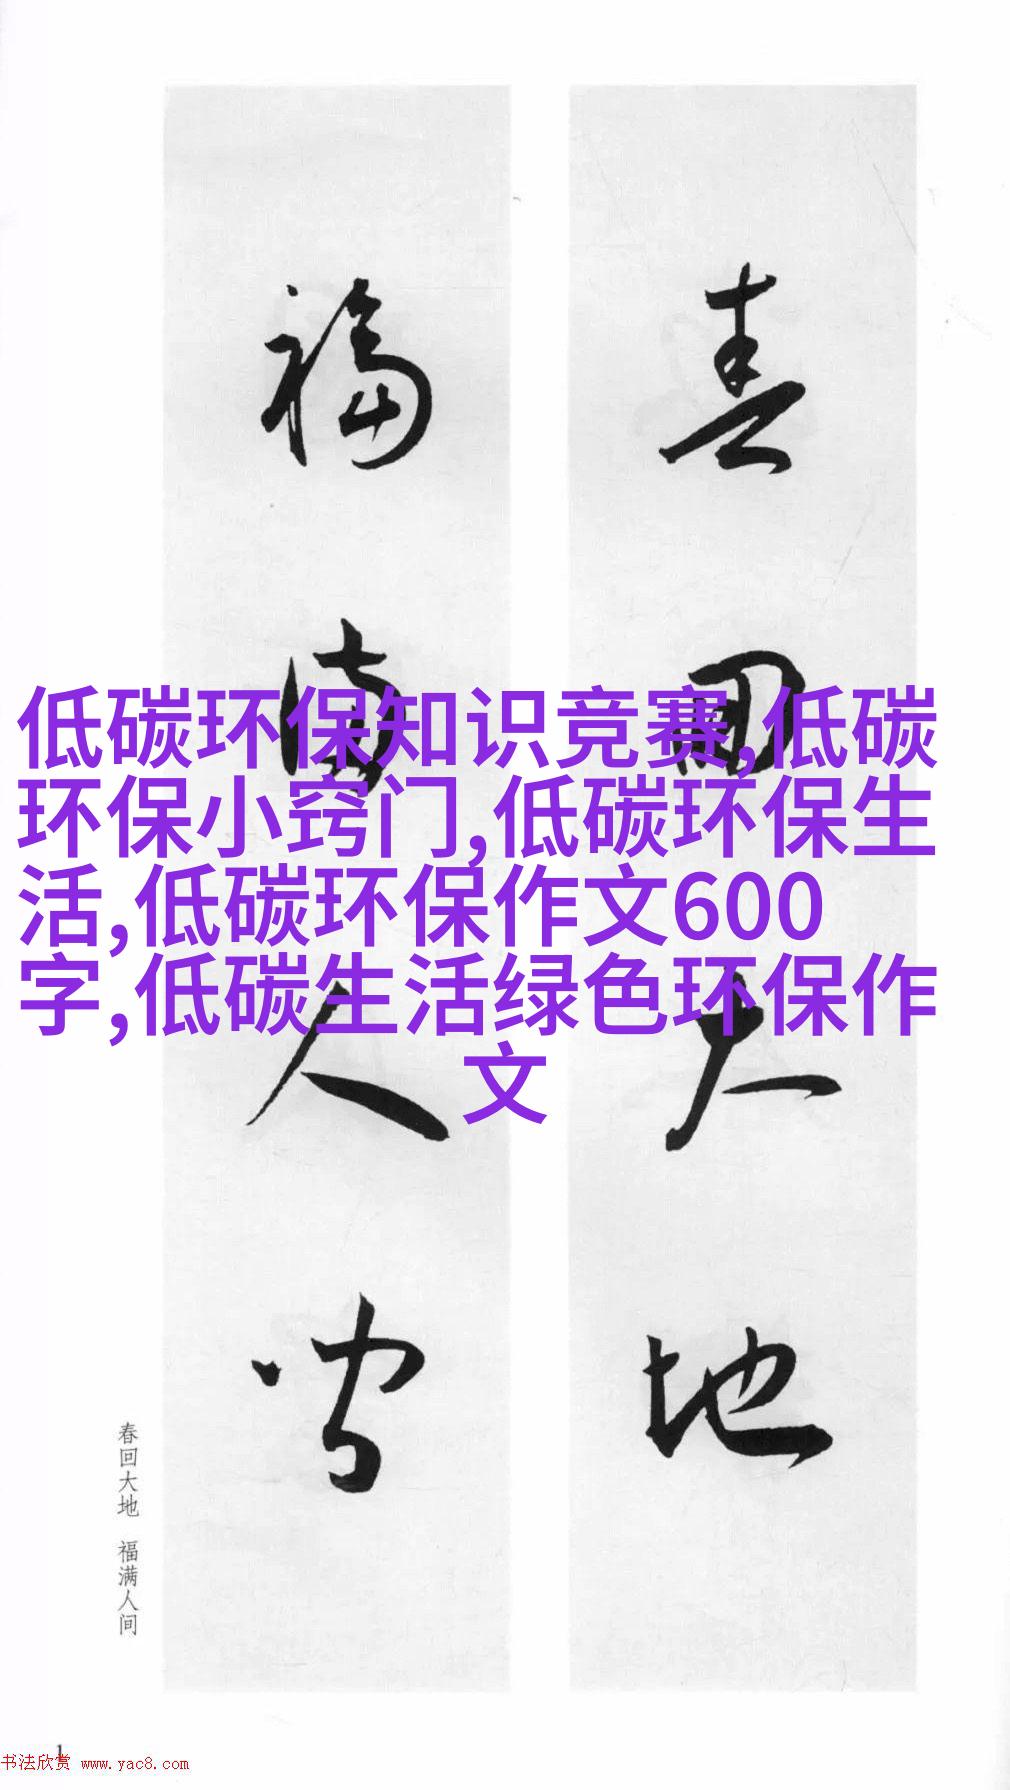 春回大地
福满人间
低碳环保知识竞赛,低碳
环保小窍门,低碳环保生
活,低碳环保作文600
字,低碳生活绿色环保作
文
春回大地 福满人间
1
书法欣赏 www.yac8.com